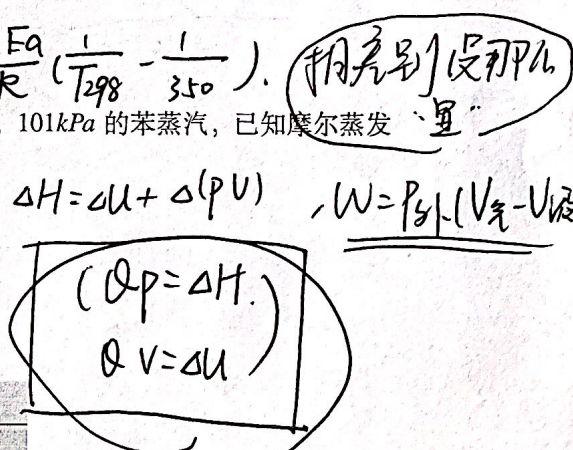 Ea/R (1/T298 - 1/350).
差别没那么
101kPa 的苯蒸汽，已知摩尔蒸发
ΔH=ΔU+Δ(pV) , W=P外(V气-V液
(Qp=ΔH.
QV=ΔU)